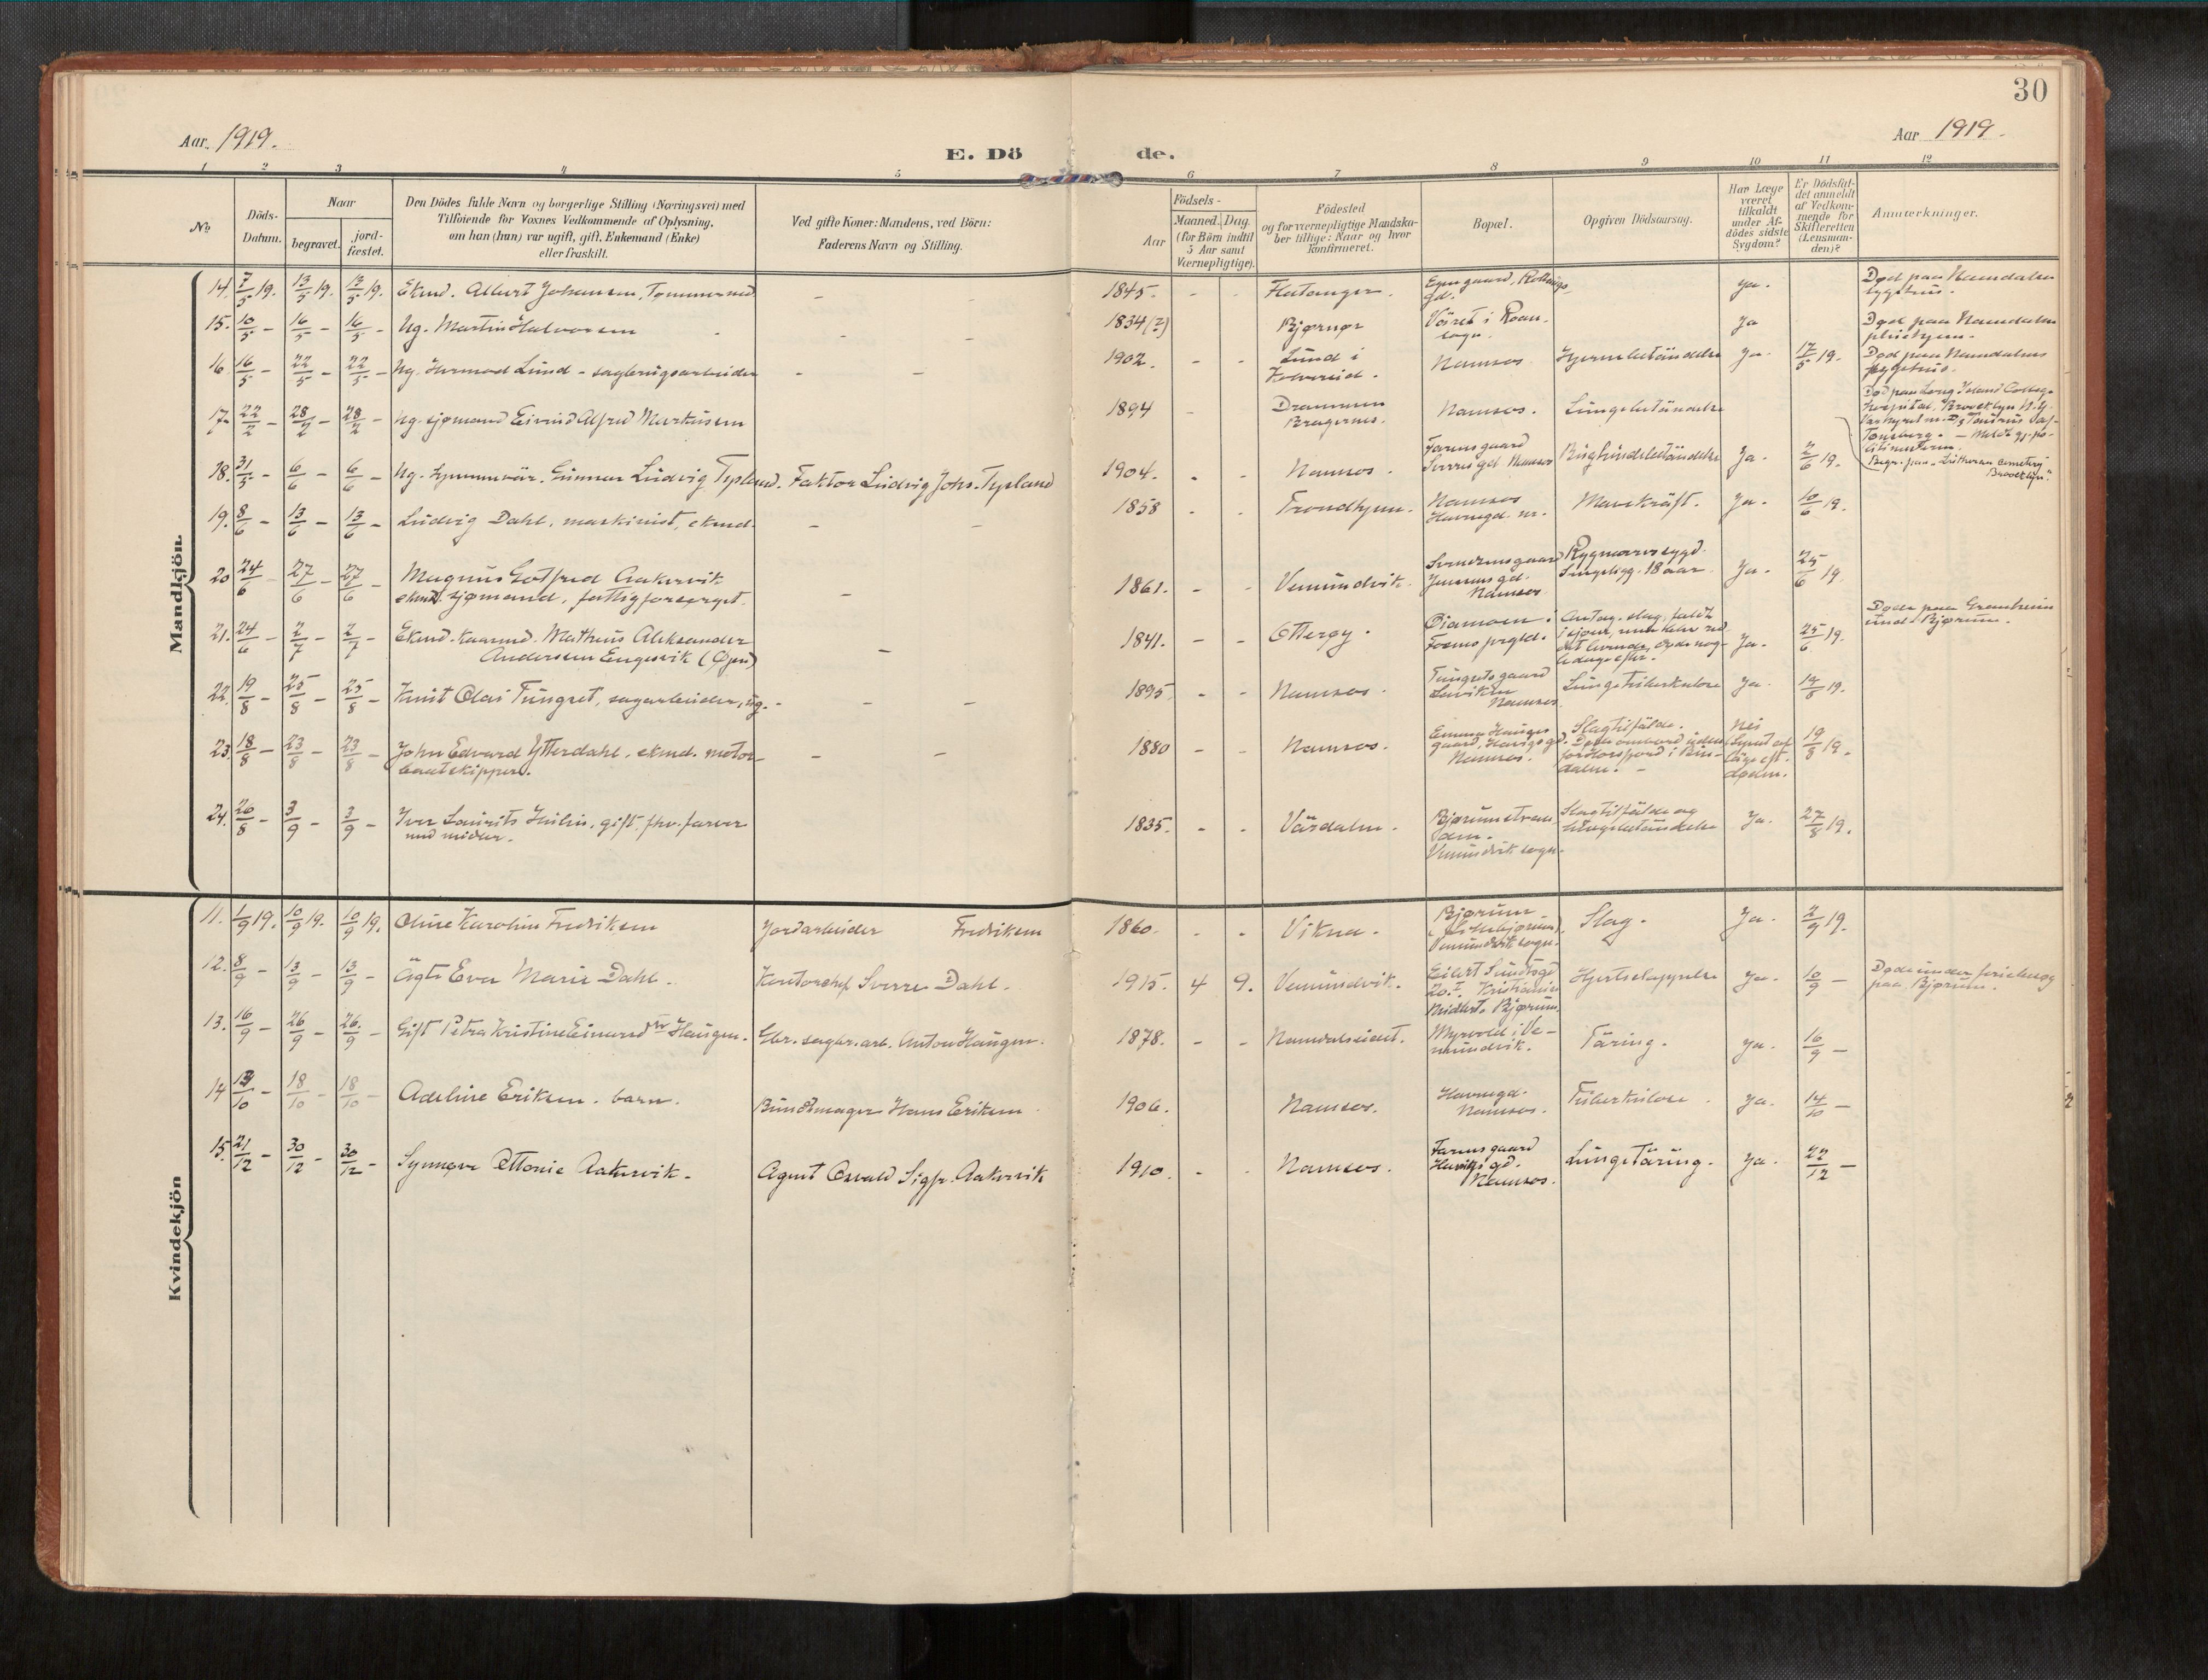 30
Aar 1919.
Aar 1919.
E. Dö de.
1 2 3 4 5 6 7 8 9 10 11 12
No
Döds-Datum.
Naar
begravet.
jord-fæstet.
Den Dödes fulde Navn og borgerlige Stilling (Næringsvei) med
Tilföiende for Voxnes Vedkommende af Oplysning,
om han (hun) var ugift, gift, Enkemand (Enke)
eller fraskilt.
Ved gifte Koner: Mandens, ved Börn:
Faderens Navn og Stilling.
Födsels-
Aar
Maaned. Dag.
(for Börn indtil
5 Aar samt
Værnepligtige).
Födested
og for værnepligtige Mandska-
ber tillige: Naar og hvor
konfirmeret.
Bopæl.
Opgiven Dödsaarsag.
Har Læge
været
tilkaldt
under Af-
dödes sidste
Sygdom?
Er Dödsfal-
det anmeldt
af Vedkom-
mende for
Skifteretten
(Lensman-
den)?
Anmærkninger.
Mandkjön.
14. 7/5 19. 13/5 19. 13/5 19. Ekmd. Albert Johansen, - 1845. - - Flatanger. Ja. Død paa Namdalen
sygehus.
15. 10/5 - 16/5 - 16/5 - Ug. Martin Halvorsen - - 1834(?) Bjørnør Ja Død paa Namdalen
pleiehjem.
16. 16/5 - 22/5 - 22/5 - Ug. Hermod Lund - sagbrugsarbeider - - 1902. - - Lund i
Kolvereid. Namsos Hjernebetændelse Ja. 17/5 19. Død paa Namdalens
sygehus.
17. 22/2 - 28/2 - 28/2 - Ug. sjømand Eivind Alfred Markussen 1894 - Drammen
Bragernes. Namsos. Lungebetændelse Død paa Long Island College
hospital, Brooklyn N.Y.
Begr. paa "Lutheran Cemetery
Brooklyn".
18. 31/5 - 6/6 - 6/6 - Ug. hjemmevär. Gunnar Ludvig Tysland. Faktor Ludvig Johs. Tysland 1904. - - Namsos. Farensgaard
Sverres gd. Namsos Bughindebetændelse Ja. 2/6 19.
19. 8/6 - 13/6 - 13/6 - Ludvig Dahl, maskinist, ekmd. - - 1858 - - Trondhjem. Namsos
Havnegd. nr. Mavekræft. Ja. 10/6 19.
20 24/6 - 27/6 - 27/6 - Magnus Gotfred Aakervik
ekmd. sjømand, fattigforsørget. - 1861. - - Vemundvik. Svendsensgaard
Jensensgd.
Namsos Rygmarvssygd.
Sengeligg. 18 aar. Ja. 25/6 19.
21. 24/6 - 2/7 - 2/7 - Ekmd. kaarmd. Mathæus Aleksander
Andersen Engesvik (Øyen) - 1841. - - Otterøy. Ja. 25/6 19. Døde paa Granheim
und. Bjørum.
22. 19/8 - 25/8 - 25/8 - Knut Olai Tungset, sagarbeider, ug. - - - 1895 - - Namsos. Tungsetsgaard
Namsos. Lungetuberkulose Ja. 19/8 19.
23. 18/8 - 23/8 - 23/8 - John Edvard Ytterdahl, ekmd. motor-
baatskipper. - - 1880 - - Namsos. Einar Hauges
gaard, Havigs gd.
Namsos. Slagtilfälde. Nei
19/8 19.
24. 26/8 - 3/9 - 3/9 - Iver Laurits Julin, gift. fhv. farver
med midler. 1835. - - Värdalen. Bjørumstran
den.
Vemundvik sogn. Slagtilfälde og
Ja. 27/8 19.
Kvindekjön
11. 1/9 19. 10/9 19. 10/9 19. Oline Karoline Fredriksen Jordarbeider Fredriksen 1860. - - Vikna. Bjørum
Vemundvik sogn. Slag. Ja. 2/9 19.
12. 8/9 - 13/9 - 13/9 - Ägte Eva Marie Dahl. Kontorchef Sverre Dahl. 1915. 4 9. Vemundvik. Eilert Sundtsgd
20.I. Kristiania
Midlert. Bjørum. Hjerteslappelse Ja. 10/9 - Døde under ferieheng
paa Bjørum.
13. 16/9 - 26/9 - 26/9 - Gift Petra Kristine Einarsd tr Haugen. Gbr. sagbr. arb. Anton Haugen. 1878. - - Namdalseidet. Myrvold i Ve-
mundvik. Täring. Ja. 16/9 -
14 13/10 - 18/10 - 18/10 - Adeline Eriksen. barn. Buntmager Hans Eriksen 1906. Namsos. Havnegd.
Namsos. Tuberkulose. Ja. 14/10 -
15. 21/12 - 30/12 - 30/12 - Synnøve Ottonie Aakervik. Agent Osvald Sigfr. Aakervik 1910. - - Namsos. Farensgaard
Haviks gd.
Namsos. Lungetäring. Ja. 22/12 -